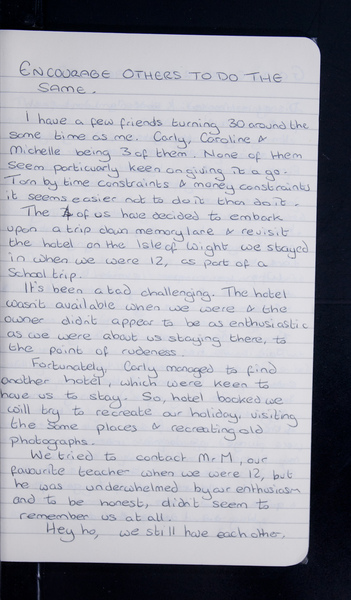 ENCOURAGE OTHERS TO DO THE
SAME.
I have a few friends turning 30 around the
same time as me. Carly, Caroline &
Michelle being 3 of them. None of them
seem particuarly keen on giving it a go.
Torn by time constraints & money constraints
it seems easier not to do it than do it.
The 4 of us have decided to embark
upon a trip down memory lane & revisit
the hotel on the Isle of Wight we stayed
in when we were 12, as part of a
School trip.
It's been a tad challenging. The hotel
wasn't available when we were & the
owner didn't appear to be as enthusiastic
as we were about us staying there, to
the point of rudeness.
Fortunately, Carly managed to find
another hotel, which were keen to
have us to stay. So, hotel booked we
will try to recreate our holiday, visiting
the same places & recreating old
photographs.
We tried to contact Mr M, our
favourite teacher when we were 12, but
he was underwhelmed by our enthusiasm
and to be honest, didn't seem to
remember us at all.
Hey ho, we still have each other.